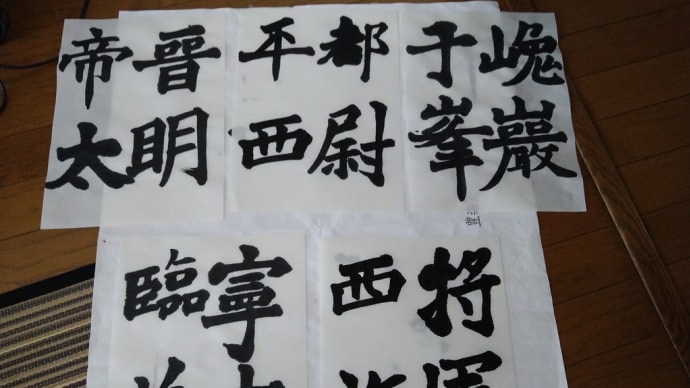 巖
于峯
都尉
平西
晉明
帝太
将
西
寧
臨